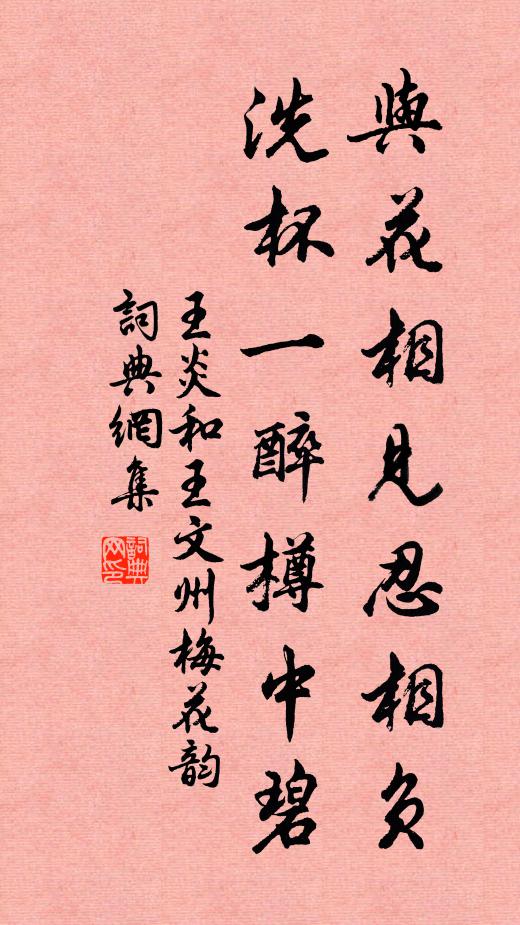 與花相見忍相負
洗杯一醉樽中碧
王炎和王文州梅花韵
詞典網集
詞典网印